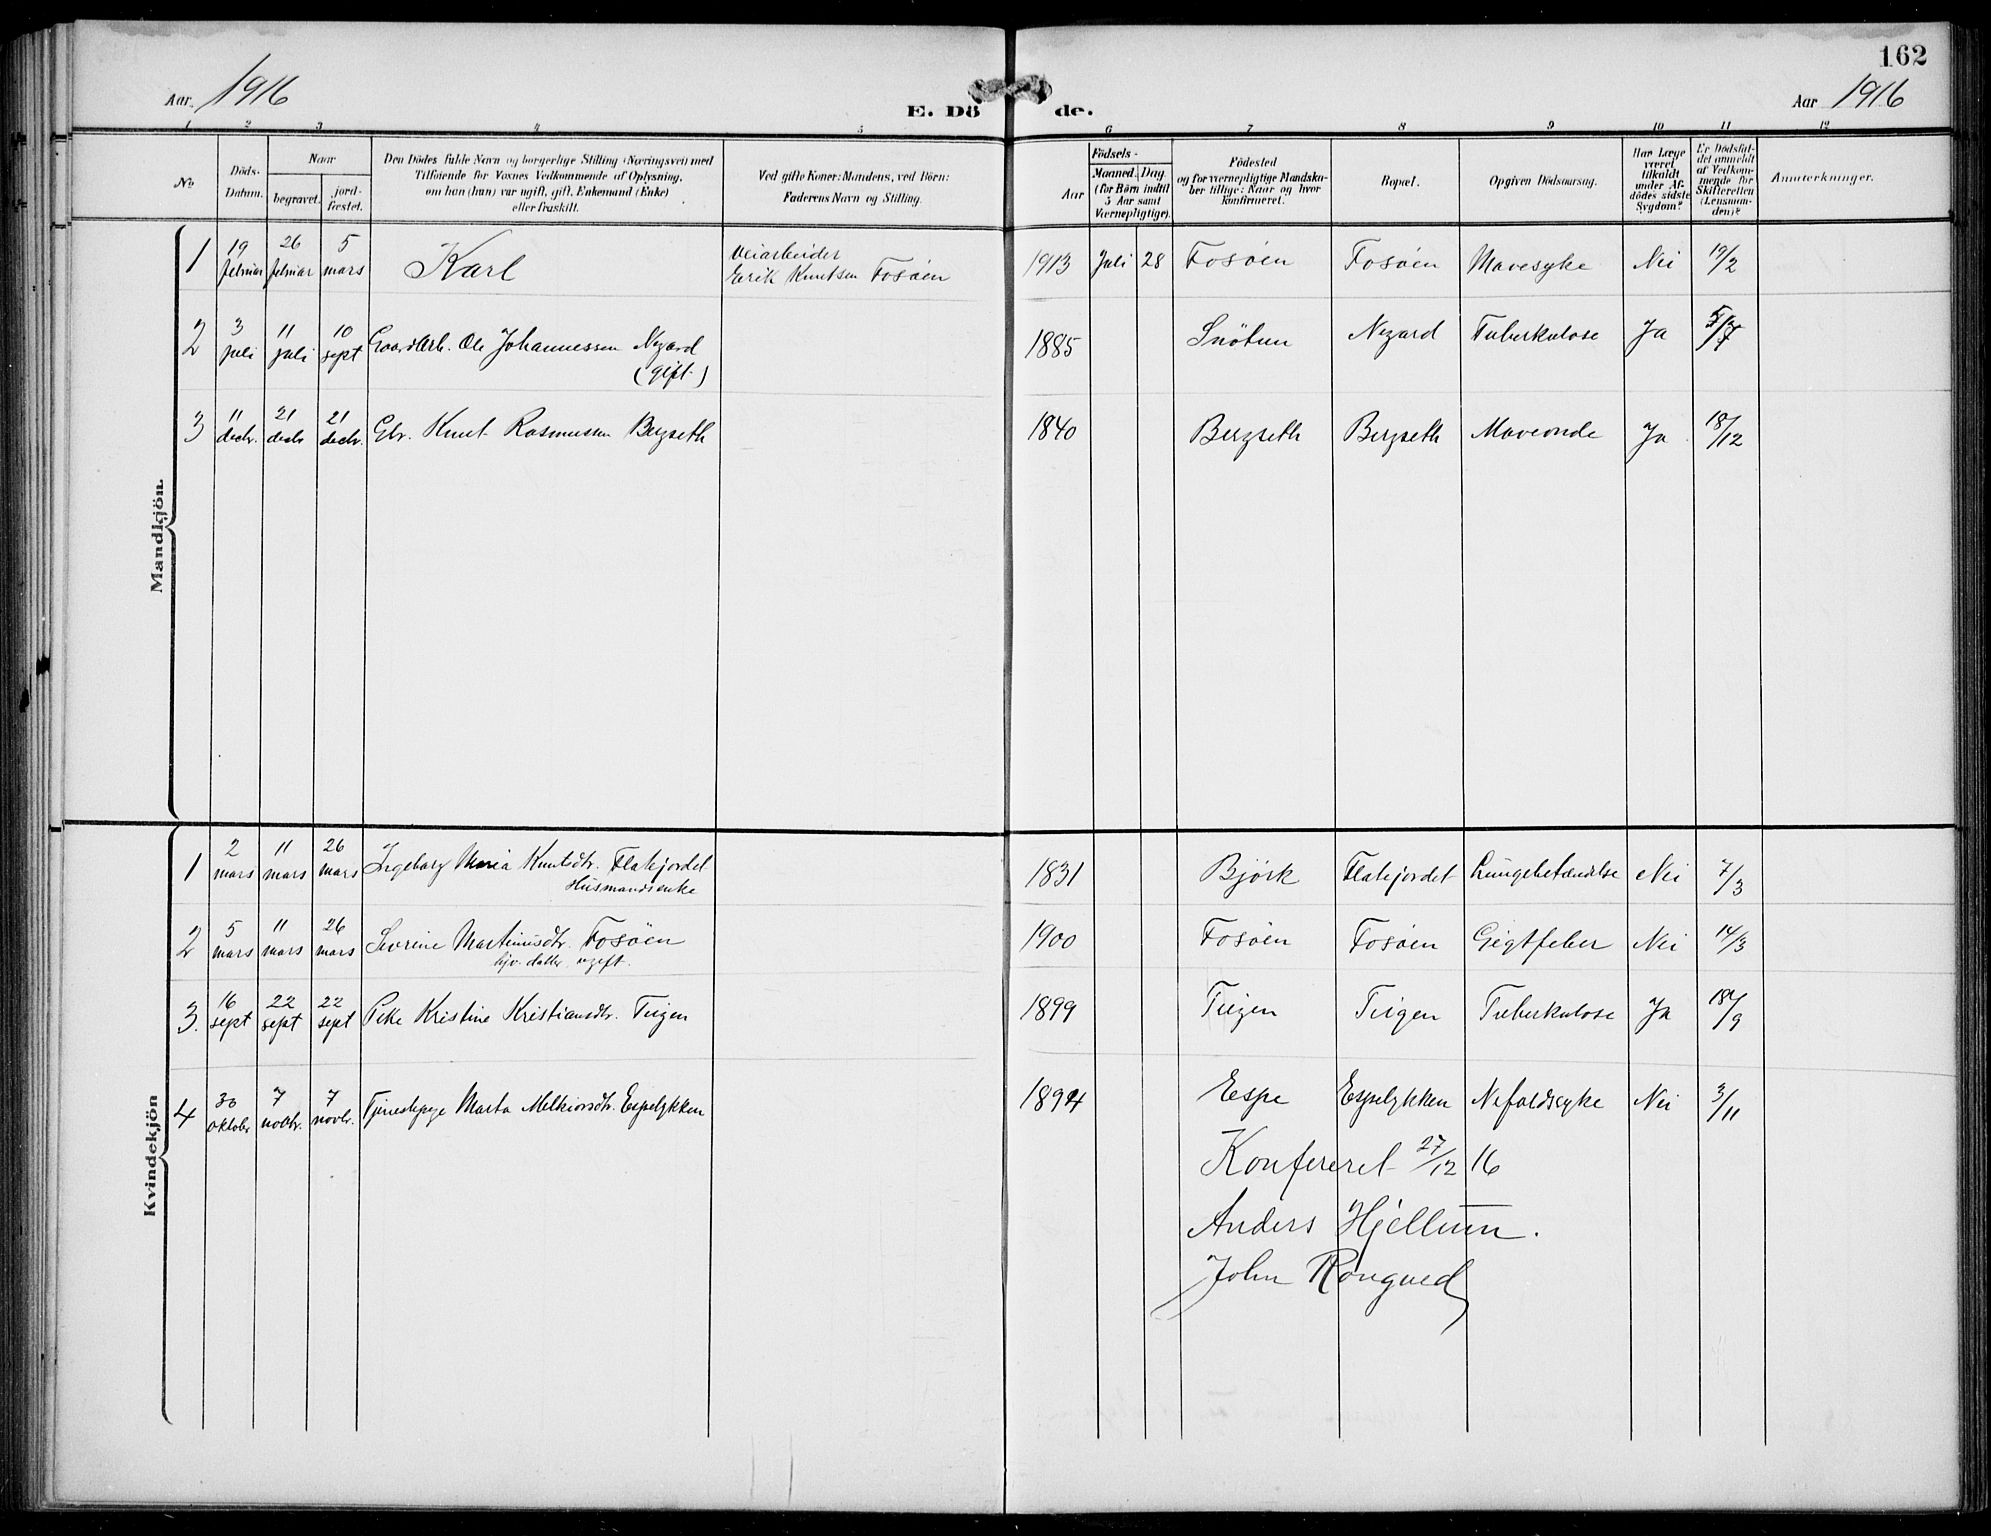 162
Aar 1916
E. Dö de.
Aar 1916
1 2 3 4 5 6 7 8 9 10 11 12
No
Döds-Datum.
Naar
begravet.
jord-fæstet.
Den Dödes fulde Navn og borgerlige Stilling (Næringsvei) med
Tilföiende för Voxnes Vedkommende af Oplysning,
om han (hun) var ugift, gift, Enkemand (Enke)
eller fraskilt.
Ved gifte Koner: Mandens, ved Börn:
Faderens Navn og Stilling.
Födsels-
Aar
Maaned. Dag
(for Börn indtil
5 Aar samt
Værnepligtige).
Födested
og for værnepligtige Mandska-
ber tillige: Naar og hvor
konfirmeret.
Bopæl.
Opgiven Dödsaarsag.
Har Læge
været
tilkaldt
under Af-
dödes sidste
Sygdom?
Er Dödsfal-
det anmeldt
af Vedkom-
mende for
Skifteretten
(Lensman-
den)?
Anmærkninger.
Mandkjön.
1 19 februar 26 februar 5 mars Karl Veiarbeider Eerik Knutsen Fosöen 1913 Juli 28 Fosöen Fosöen Mavesyke Nei 19/2
2 3 juli 11 juli 10 sept Gaardarb. Ole Johannessen Nygard 1885 Snötun Nygard Tuberkulose Ja 5/7
(gift)
3 11 decbr. 21 decbr 21 decbr. Gbr. Knut Rasmussen Bergseth 1840 Bergseth Bergseth Maveonde Ja 18/12
Kvindekjön
1 2 mars 11 mars 26 mars Ingeborg Maria Knutsdtr. Flatejordet 1831 Bjørk Flatejordet Lungebetændelse Nei 7/3
Husmandsenke
2 5 mars 11 mars 26 mars Severine Martinusdtr. Fosöen 1900 Fosöen Fosöen Gigtfeber Nei 14/3
datter ugift.
3. 16 sept 22 sept 22 sept Pike Kristine Kristiansdtr. Teigen 1899 Teigen Teigen Tuberkulose Ja 18/9
4 30 oktober 7 novbr. 7 novbr. Tjenestepige Marta Melkiorsdtr. Espelykken 1894 Espe Espelykken Nefaldsyke Nei 3/11
Konfereret 27/12 16
Anders Hjellum.
John Rongved